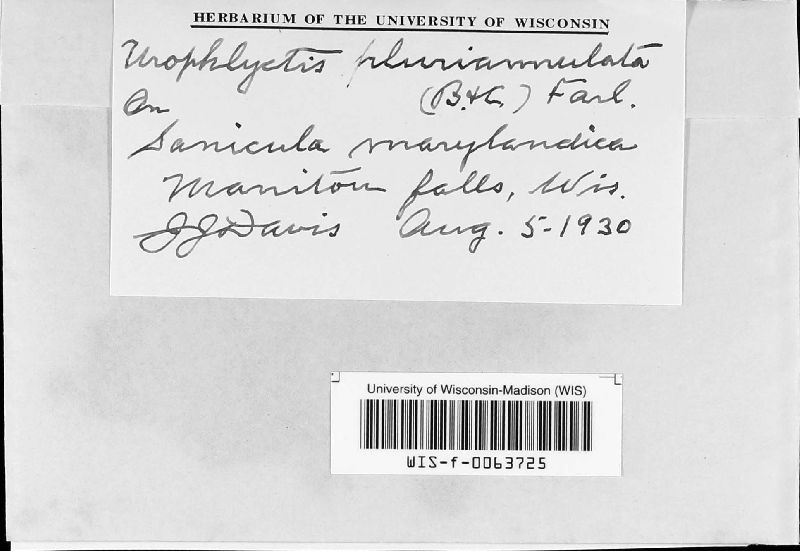 HERBARIUM OF THE UNIVERSITY OF WISCONSIN
Urophlyctis pluriannulata
(B.&C.) Farl.
On
Sanicula marylandica
Manitou falls, Wis.
JJDavis Aug. 5-1930
University of Wisconsin-Madison (WIS)
WIS-f-0063725